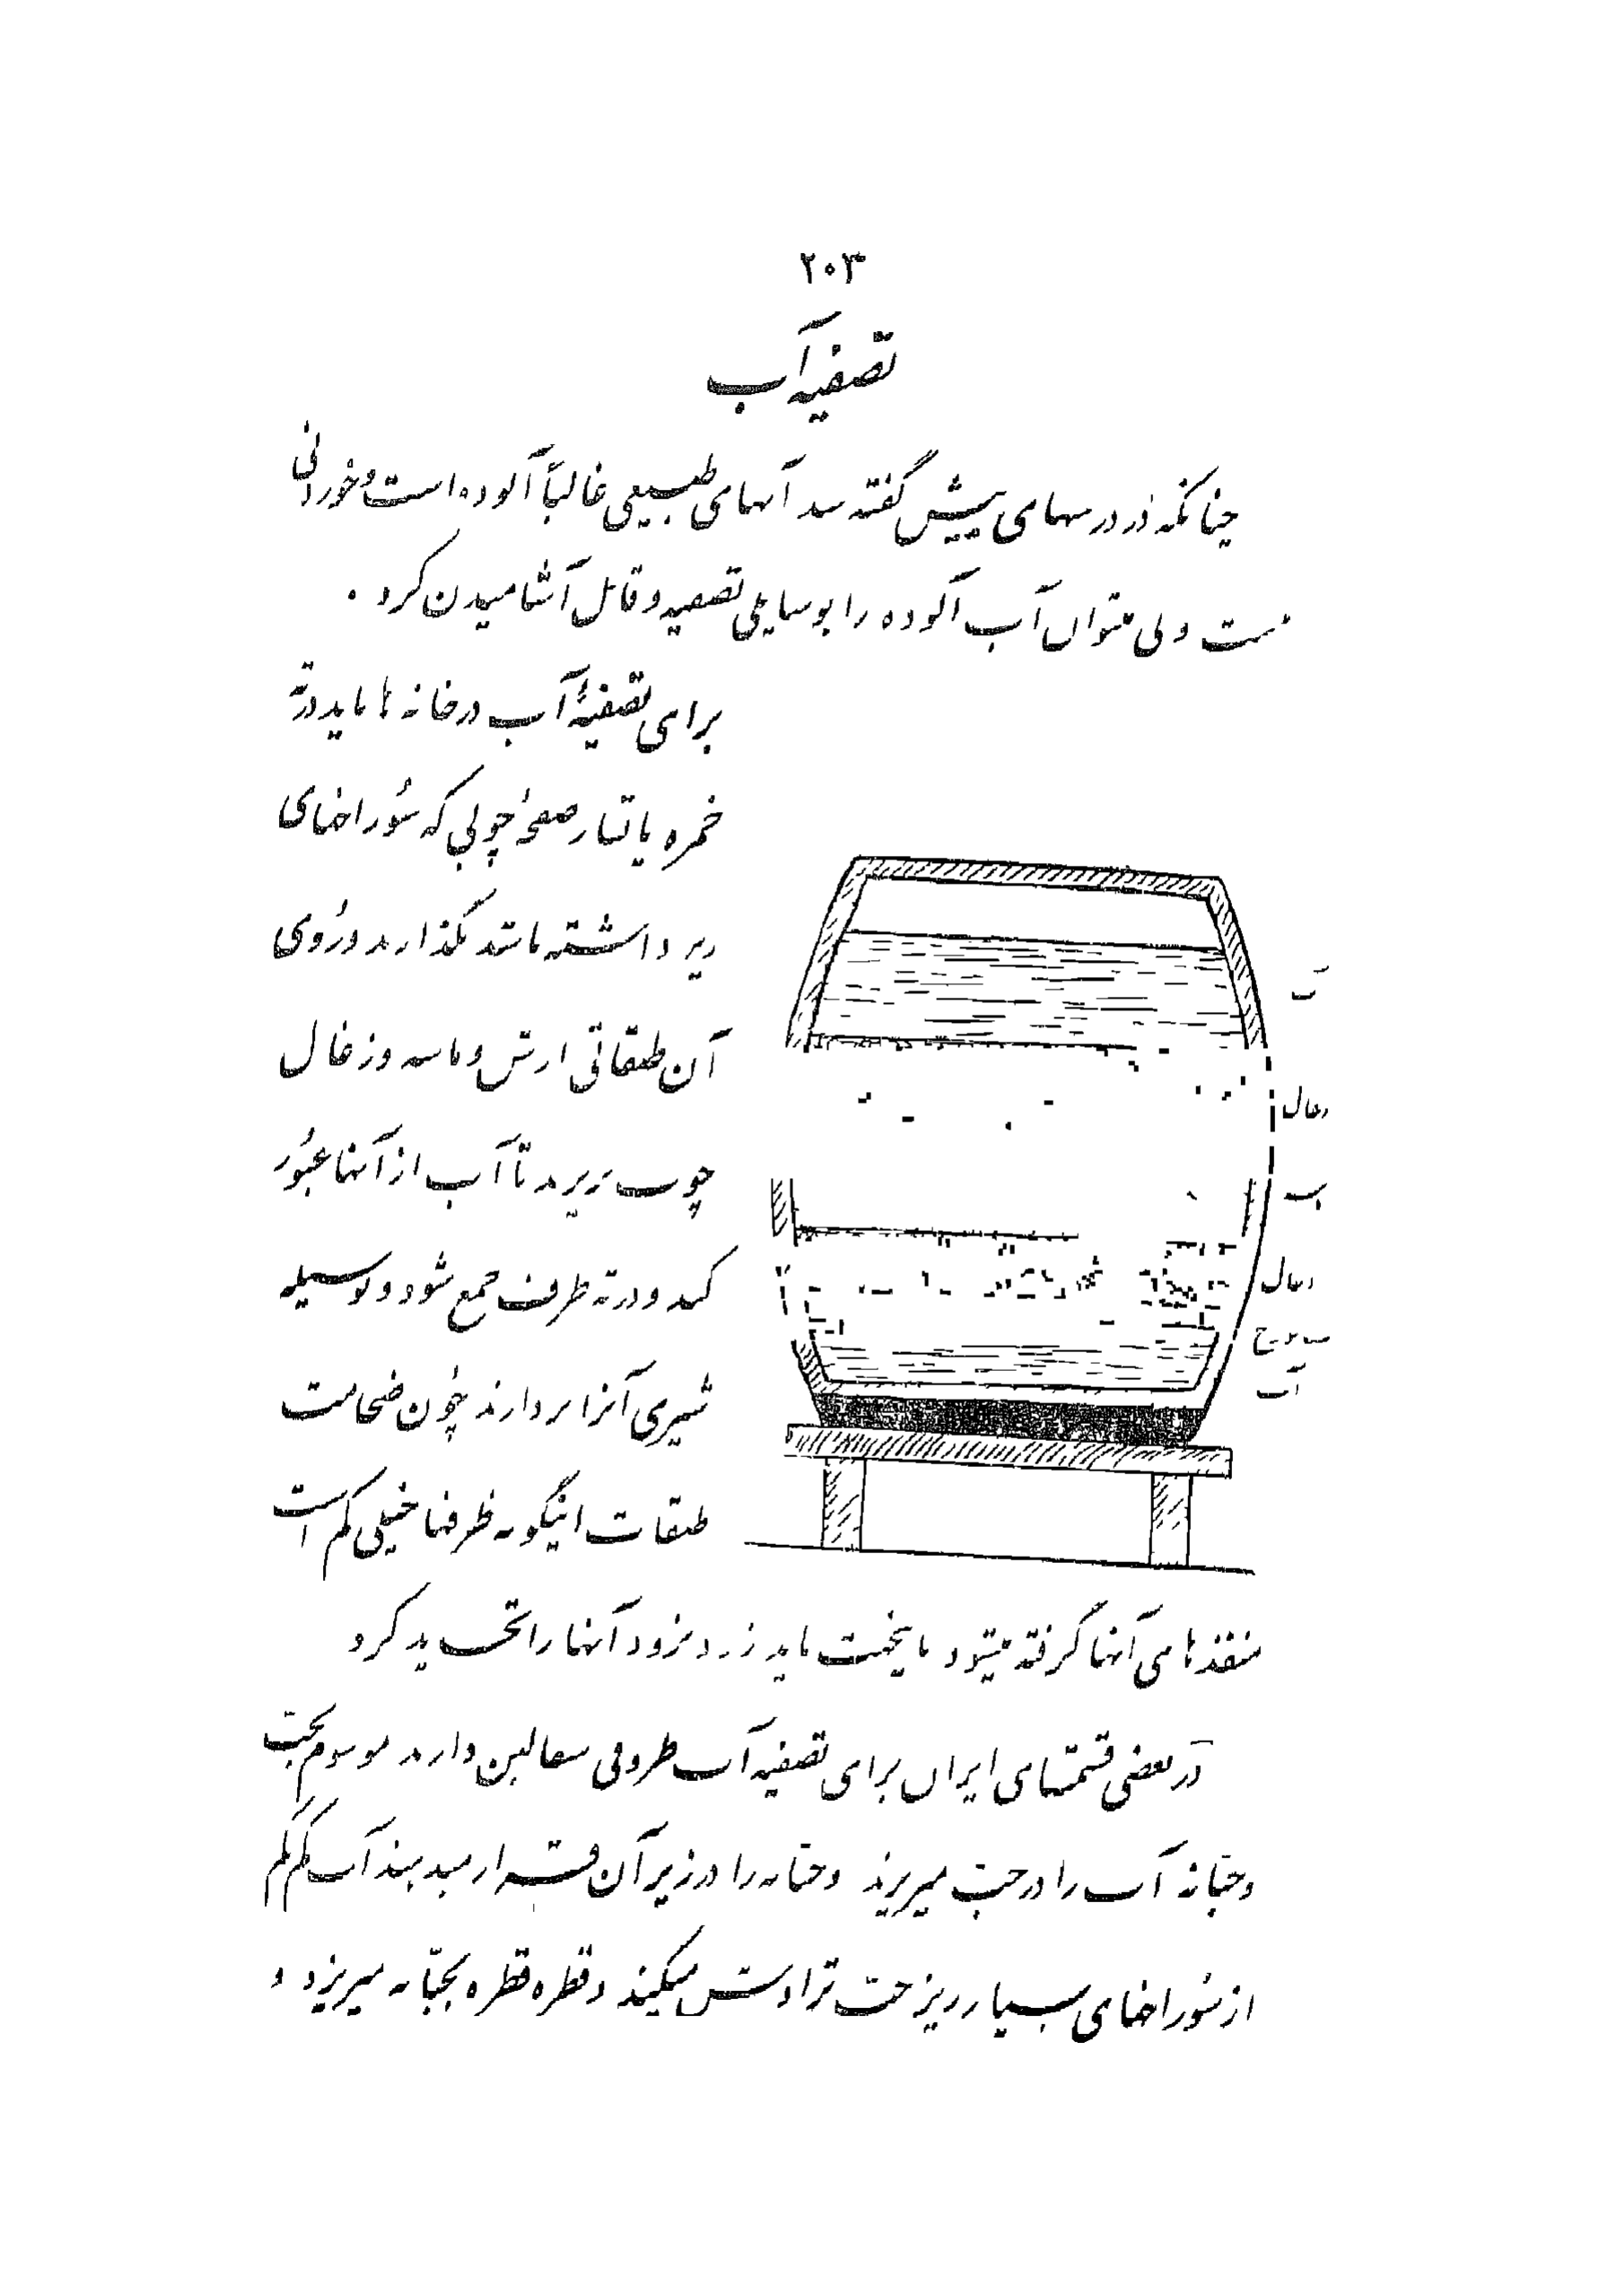 ۲۰۳
تصفیه آب
چنانکه در درسهای پیش گفته شد آبهای طبیعی غالباً آلوده است و خوردنی
نیست ولی میتوان آب آلوده را بوسایلی تصفیه و قابل آشامیدن کرد .
برای تصفیهٔ آب در خانه ها باید در ته
خمره یا تغار صفحهٔ چوبی که سُوراخهای
ریز داشته باشد بگذارند و رُوی
آن طبقاتی از شن و ماسه و زغال
چوب بریزند تا آب از آنها عبُور
کند و در ته ظرف جمع شود و بوسیله
شیری آنرا بردارند چُون ضخامت
طبقات اینگونه ظرفها خیلی کم است
منفذهای آنها گرفته میشود باینجهت باید زود بزود آنها را تجدید کرد
در بعضی قسمتهای ایران برای تصفیه آب ظروفی سفالین دارند موسوم بحبّ
و حبّانه آب را در حبّ میریزند و حبّانه را در زیر آن قرار میدهند آب کم کم
از سُوراخهای بسیار ریز حبّ تراوش میکند و قطره قطره بحبّانه میریزد و
آب
زغال
زغال
آب